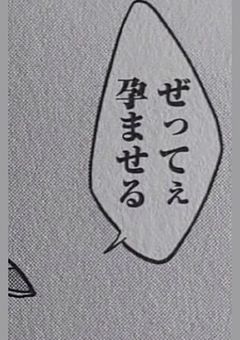 ぜってぇ
孕ませる